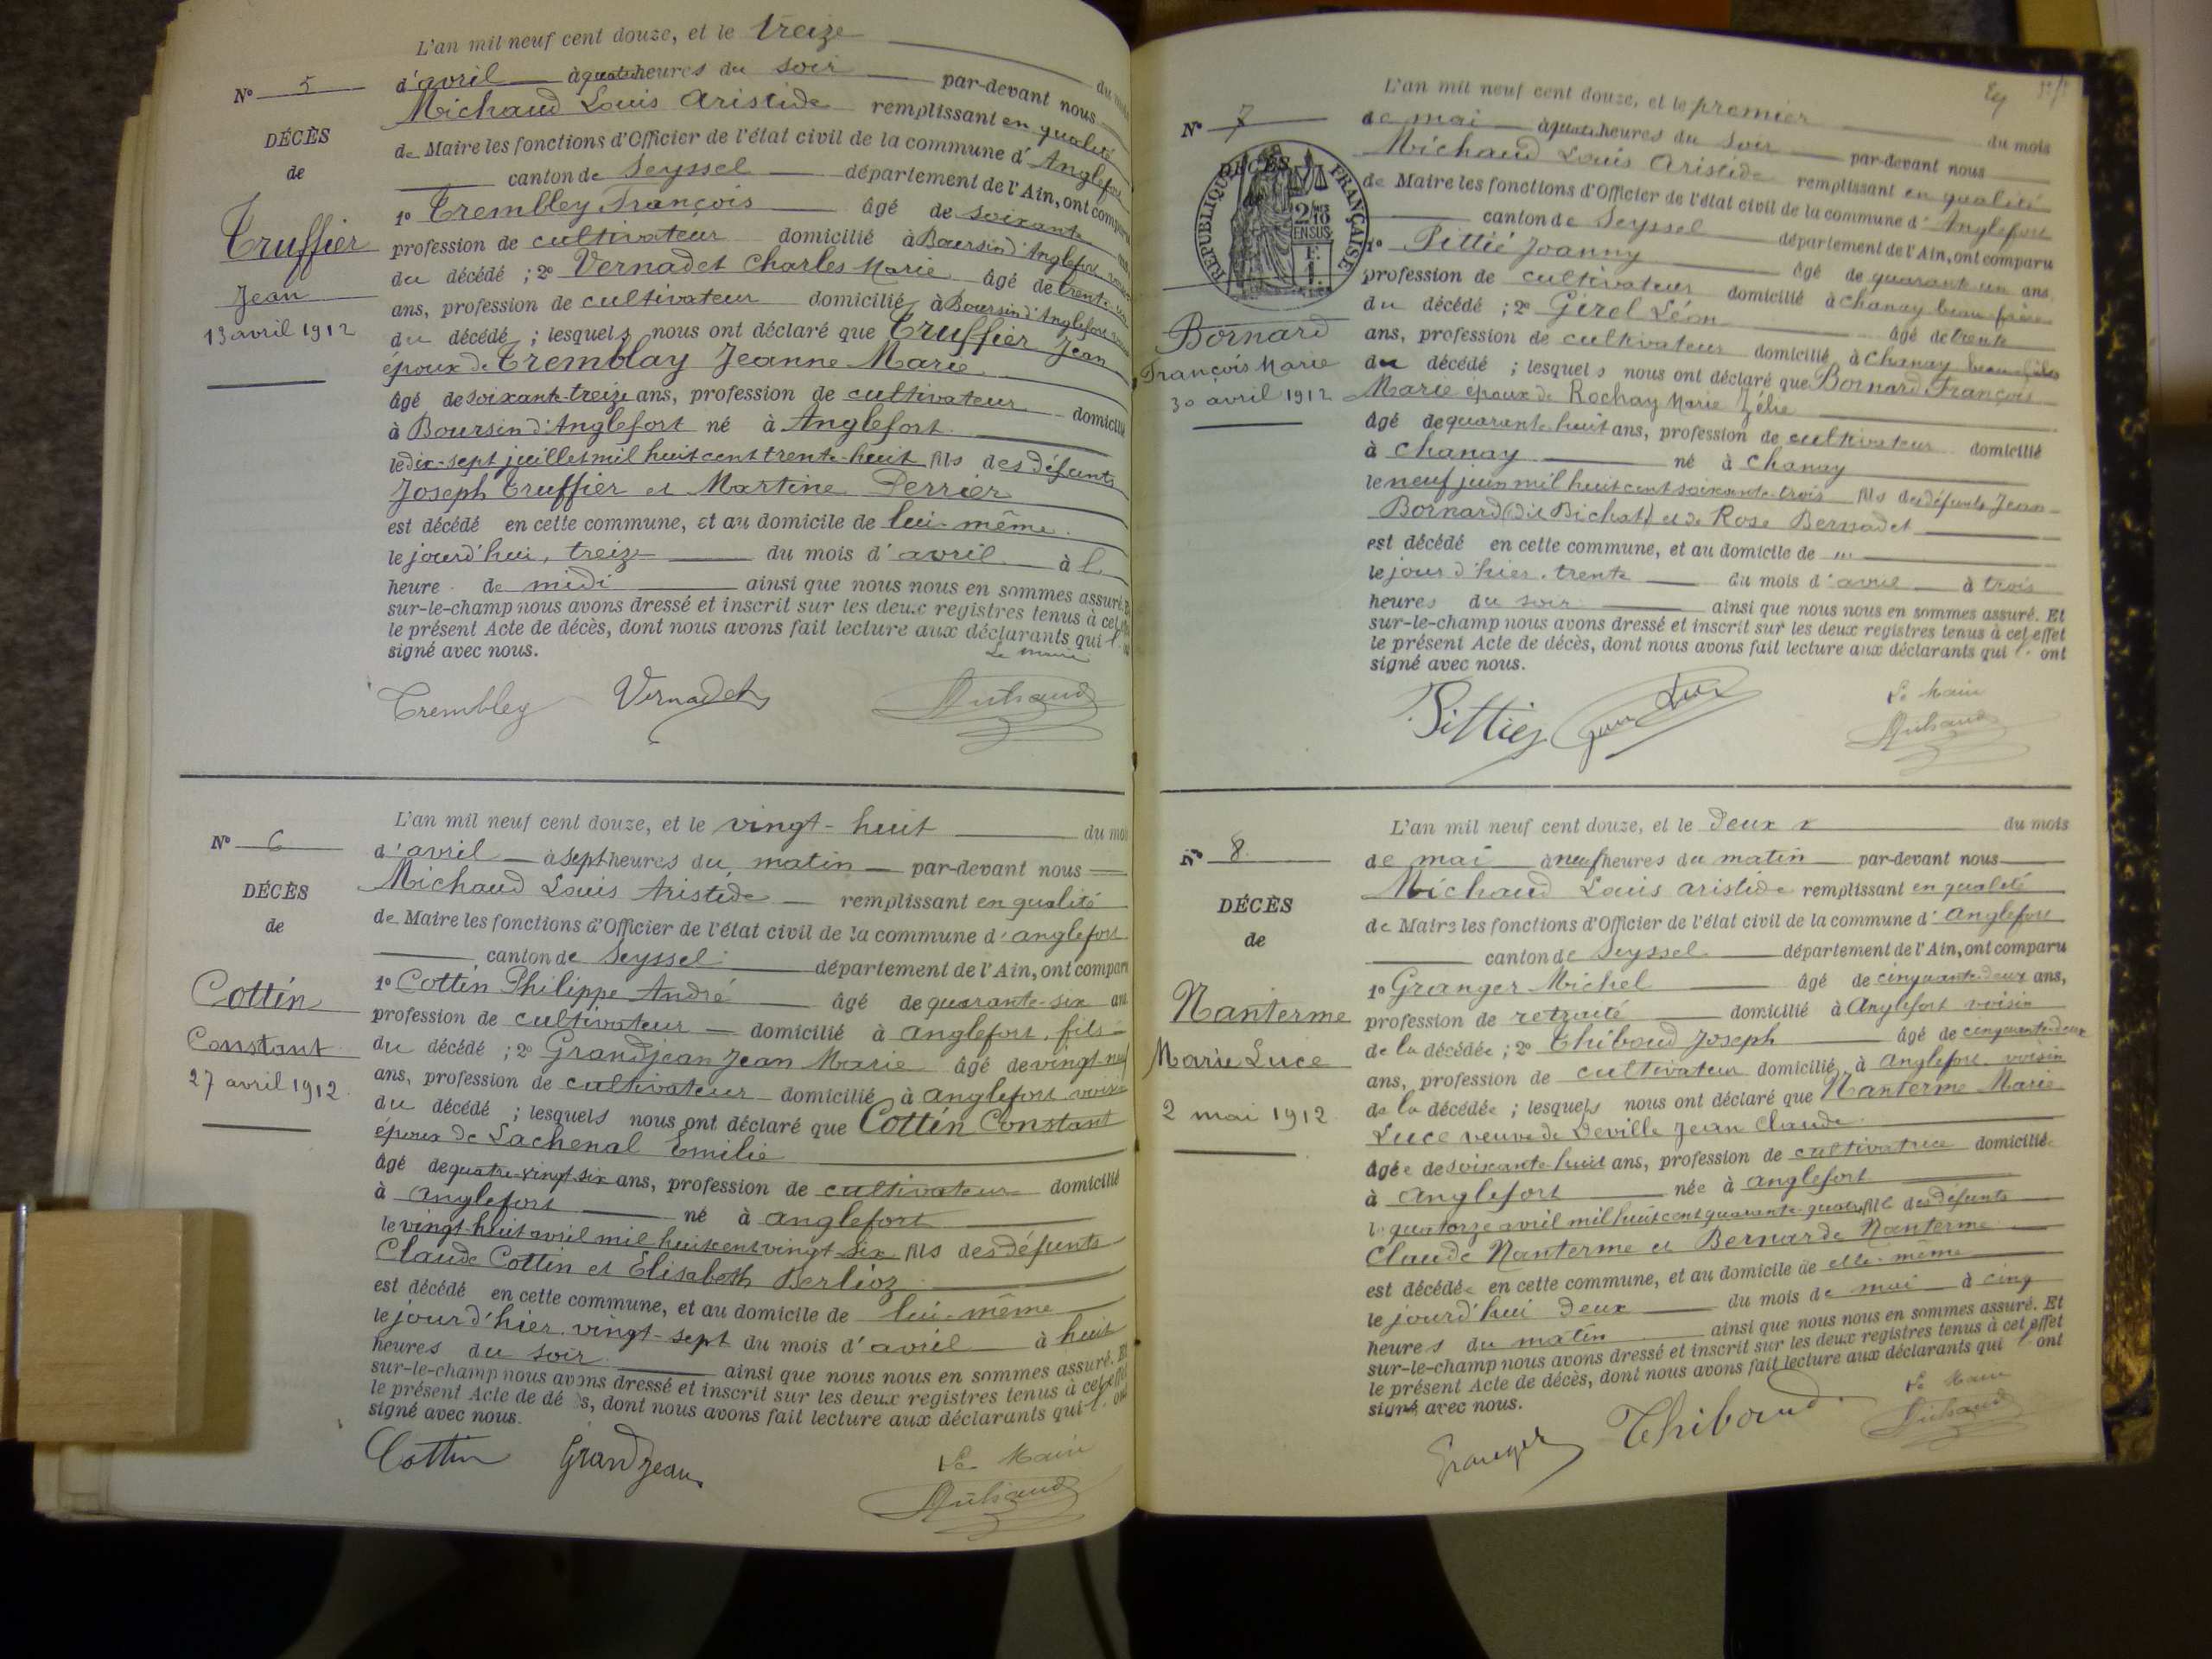 L'an mil neuf cent douze, et le treize du mois
N° 5
d'avril à quatre heures du soir par-devant nous
Michaud Louis Aristide remplissant en qualité
DÉCÈS
de Maire les fonctions d'Officier de l'état civil de la commune d'Anglefort
de
canton de Seyssel département de l'Ain, ont comparu
1° Trembley François âgé de soixante
Truffier
profession de cultivateur domicilié à Boursin d'Anglefort
du décédé ; 2° Vernadet Charles Marie âgé de trente
Jean
ans, profession de cultivateur domicilié à Boursin d'Anglefort
13 avril 1912
du décédé ; lesquels nous ont déclaré que Truffier Jean
époux de Tremblay Jeanne Marie
âgé de soixante-treize ans, profession de cultivateur domicilié
à Boursin d'Anglefort né à Anglefort
le dix-sept juillet mil huit cent trente-huit fils des défunts
Joseph Truffier et Martine Perrier
est décédé en cette commune, et au domicile de lui-même
le jourd'hui, treize du mois d'avril à l.
heure de midi ainsi que nous nous en sommes assuré.
sur-le-champ nous avons dressé et inscrit sur les deux registres tenus à cet
le présent Acte de décès, dont nous avons fait lecture aux déclarants qui l'
signé avec nous.
Le maire
Trembley Vernadet Michaud
L'an mil neuf cent douze, et le vingt-huit du mois
N° 6
d'avril à sept heures du matin par-devant nous
Michaud Louis Aristide remplissant en qualité
DÉCÈS
de Maire les fonctions d'Officier de l'état civil de la commune d'anglefort
de
canton de Seyssel département de l'Ain, ont comparu
1° Cottin Philippe André âgé de quarante-six ans
Cottin
profession de cultivateur domicilié à anglefort, fils
du décédé ; 2° Grandjean Jean Marie âgé de vingt-neuf
Constant
ans, profession de cultivateur domicilié à anglefort voisin
27 avril 1912
du décédé ; lesquels nous ont déclaré que Cottin Constant
époux de Lachenal Emilie
âgé de quatre-vingt six ans, profession de cultivateur domicilié
à anglefort né à anglefort
le vingt-huit avril mil huit cent vingt-six fils des défunts
Claude Cottin et Elisabeth Berlioz
est décédé en cette commune, et au domicile de lui-même
le jour d'hier vingt-sept du mois d'avril à huit
heures du soir ainsi que nous nous en sommes assuré. Et
sur-le-champ nous avons dressé et inscrit sur les deux registres tenus à cet effet
le présent Acte de décès, dont nous avons fait lecture aux déclarants qui l'ont
signé avec nous.
Cottin Grandjean Le Maire
Michaud
L'an mil neuf cent douze, et le premier du mois
N° 7
de mai à quatre heures du soir par-devant nous
Michaud Louis Aristide remplissant en qualité
DÉCÈS
de
RÉPUBLIQUE FRANÇAISE
2/10
EN SUS
de Maire les fonctions d'Officier de l'état civil de la commune d'Anglefort
canton de Seyssel département de l'Ain, ont comparu
1° Pittié Joanny âgé de quarant un ans
profession de cultivateur domicilié à Chanay beau-frère
du décédé ; 2° Girel Léon âgé de trente
Bornard
ans, profession de cultivateur domicilié à Chanay
François Marie
du décédé ; lesquels nous ont déclaré que Bornard François
30 avril 1912
Marie époux de Rochay Marie Zélie
âgé de quarante huit ans, profession de cultivateur domicilié
à Chanay né à Chanay
le neuf juin mil huit cent soixante-trois fils des défunts Jean
Bornard (dit Bichat) et de Rose Bernadet
est décédé en cette commune, et au domicile de
le jour d'hier, trente du mois d'avril à trois
heures du soir ainsi que nous nous en sommes assuré. Et
sur-le-champ nous avons dressé et inscrit sur les deux registres tenus à cet effet
le présent Acte de décès, dont nous avons fait lecture aux déclarants qui l'ont
signé avec nous.
Pittié Le Maire
Michaud
L'an mil neuf cent douze, et le deux du mois
N° 8
de mai à neuf heures du matin par-devant nous
Michaud Louis aristide remplissant en qualité
DÉCÈS
de Maire les fonctions d'Officier de l'état civil de la commune d'anglefort
de
canton de Seyssel département de l'Ain, ont comparu
1° Granger Michel âgé de cinquante-deux ans,
Nanterme
profession de retraité domicilié à Anglefort voisin
de la décédée ; 2° Thiboud Joseph âgé de cinquante-deux
Marie Luce
ans, profession de cultivateur domicilié à anglefort voisin
2 mai 1912
de la décédée ; lesquels nous ont déclaré que Nanterme Marie
Luce veuve de Deville Jean Claude
âgée de soixante-huit ans, profession de cultivatrice domicilié
à Anglefort née à anglefort
le quatorze avril mil huit cent quarante-quatre fille des défunts
Claude Nanterme et Bernarde Nanterme
est décédée en cette commune, et au domicile de elle-même
le jourd'hui deux du mois de mai à cinq
heures du matin ainsi que nous nous en sommes assuré. Et
sur-le-champ nous avons dressé et inscrit sur les deux registres tenus à cet effet
le présent Acte de décès, dont nous avons fait lecture aux déclarants qui l'ont
signé avec nous.
Granger Thiboud Le Maire
Michaud